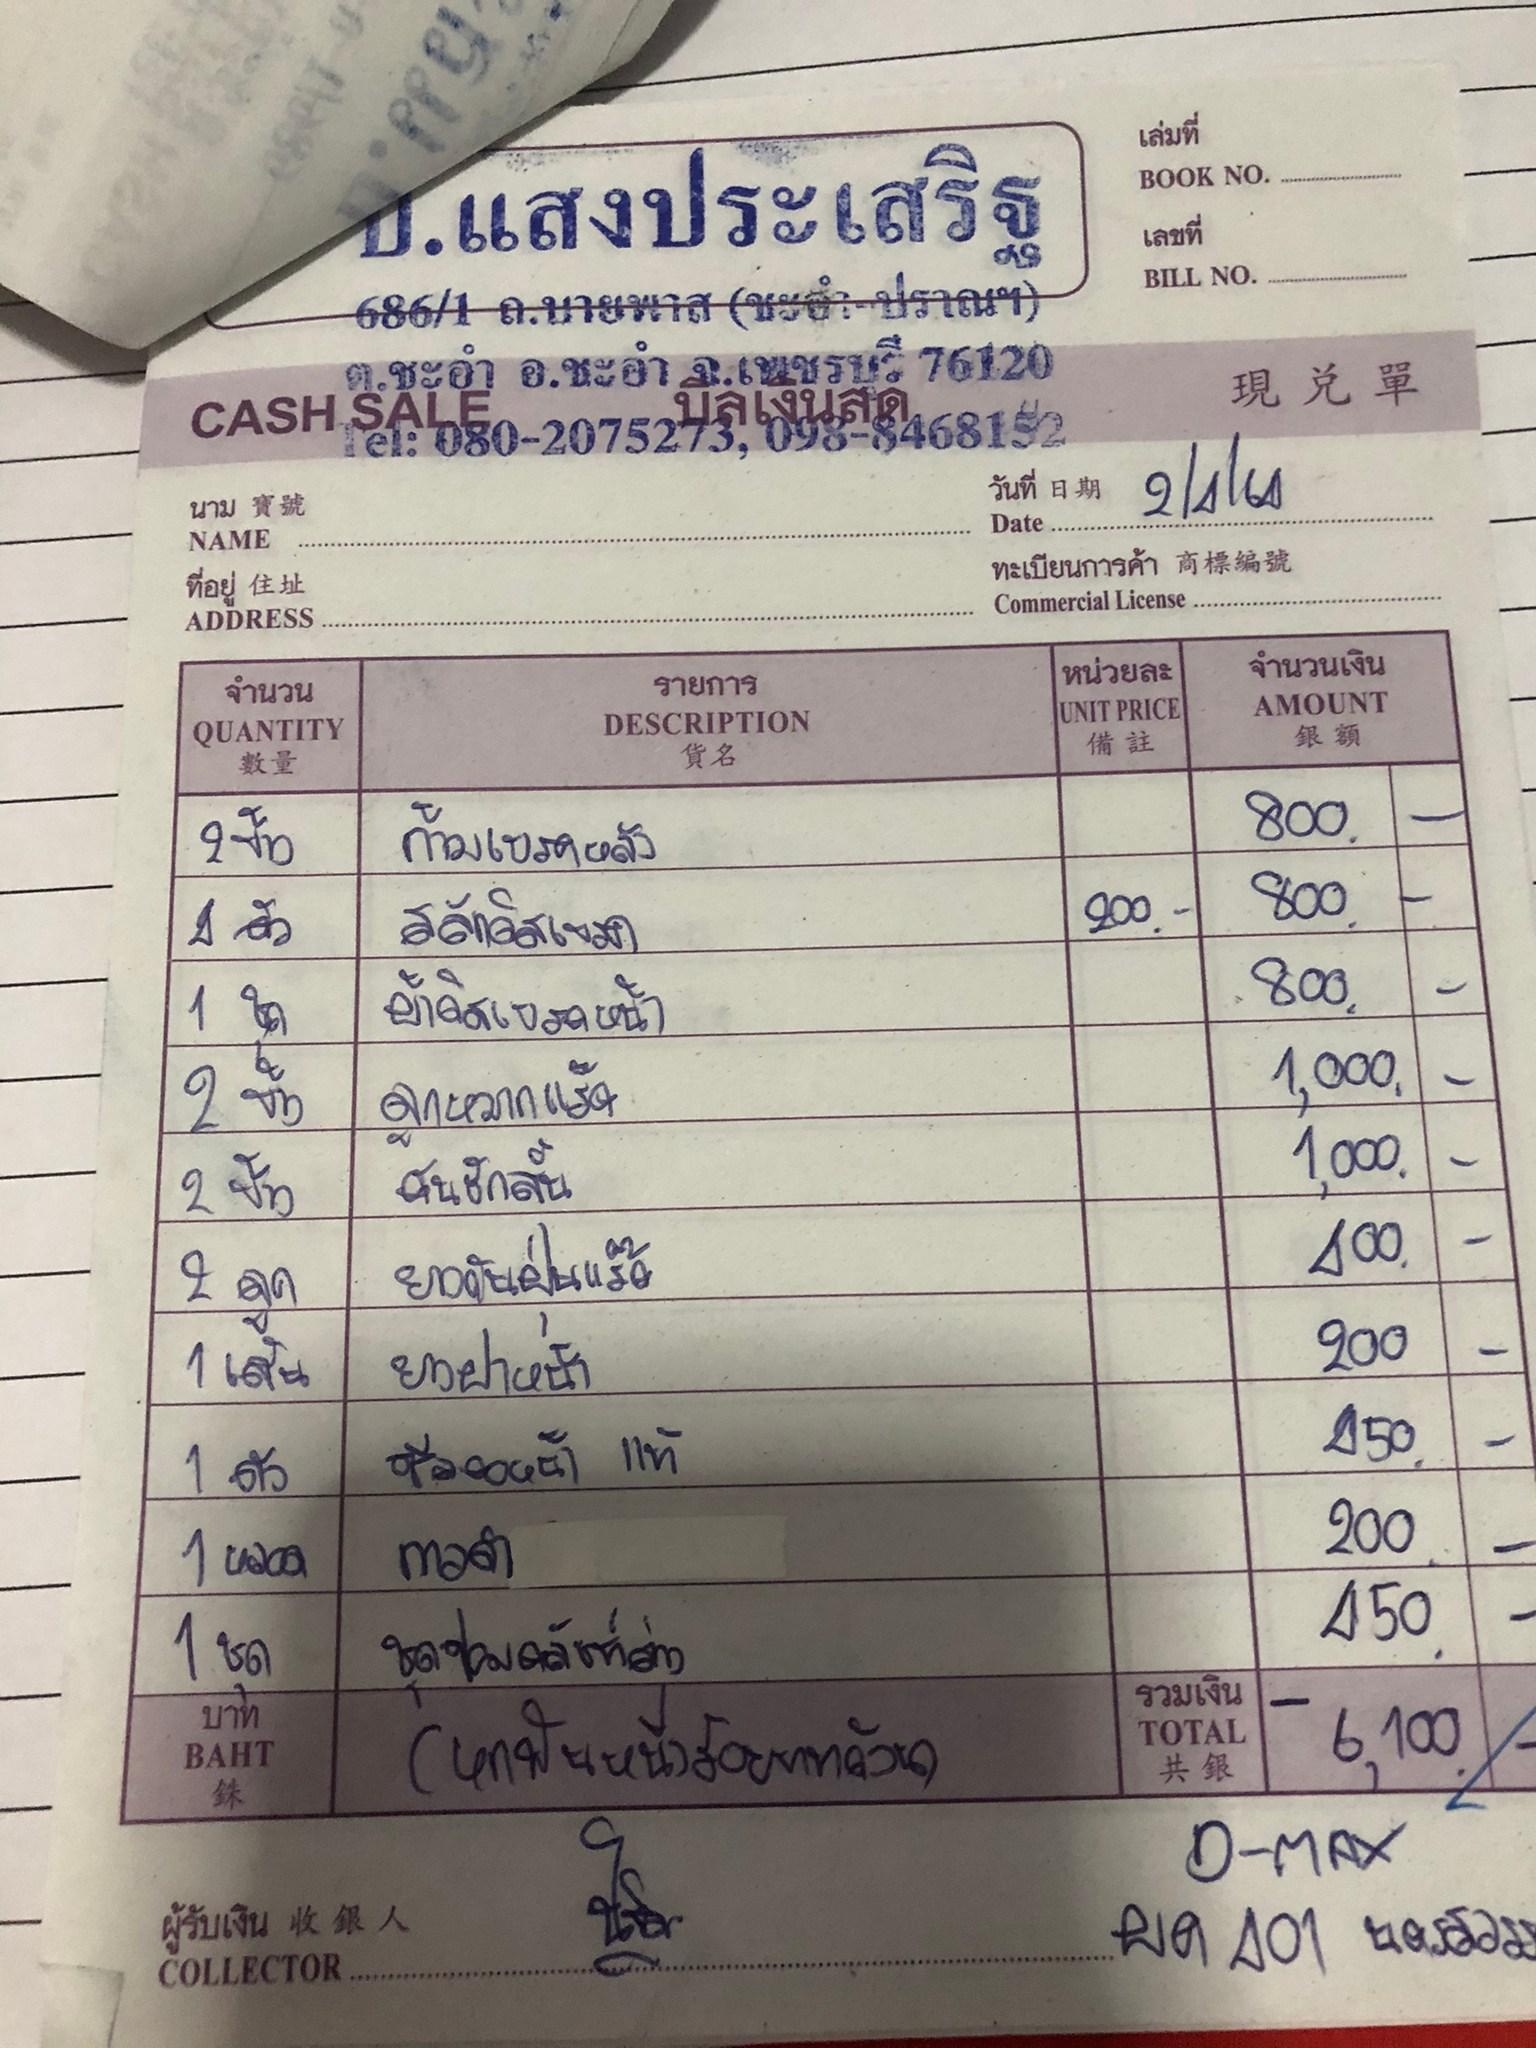 ป.แสงประเสริฐ
เล่มที่
BOOK NO.
686/1 ถ.บายพาส (ชะอำ-ปราณฯ)
เลขที่
BILL NO.
ต.ชะอำ อ.ชะอำ จ.เพชรบุรี 76120
CASH SALE บิลเงินสด 現兌單
Tel: 080-2075273, 098-8468152
นาม 寶號
NAME
วันที่ 日期
Date 2/4/64
ที่อยู่ 住址
ADDRESS
ทะเบียนการค้า 商標編號
Commercial License
จำนวน รายการ หน่วยละ จำนวนเงิน
QUANTITY DESCRIPTION UNIT PRICE AMOUNT
數量 貨名 備註 銀額
2 ชิ้น ก้ามเบรคหลัง 800. -
4 ตัว สลักดิสเบรค 200.- 800. -
1 ชุด ผ้าดิสเบรคหน้า 800. -
2 ชิ้น ลูกหมากแร็ค 1,000. -
2 ชิ้น คันชักสั้น 1,000. -
2 ลูก ยางกันฝุ่นแร็ค 400. -
1 เส้น ยางฝาหน้า 200 -
1 ตัว ซีลคอหน้า แท้ 450. -
1 หลอด กาวดำ 200. -
1 ชุด ชุดซ่อมคลัทช์ล่าง 450. -
บาท
BAHT
銖
(หกพันหนึ่งร้อยบาทถ้วน)
รวมเงิน
TOTAL
共銀
6,100. -
D-MAX
ผู้รับเงิน 收銀人
COLLECTOR
ผด 401 นครสวรร